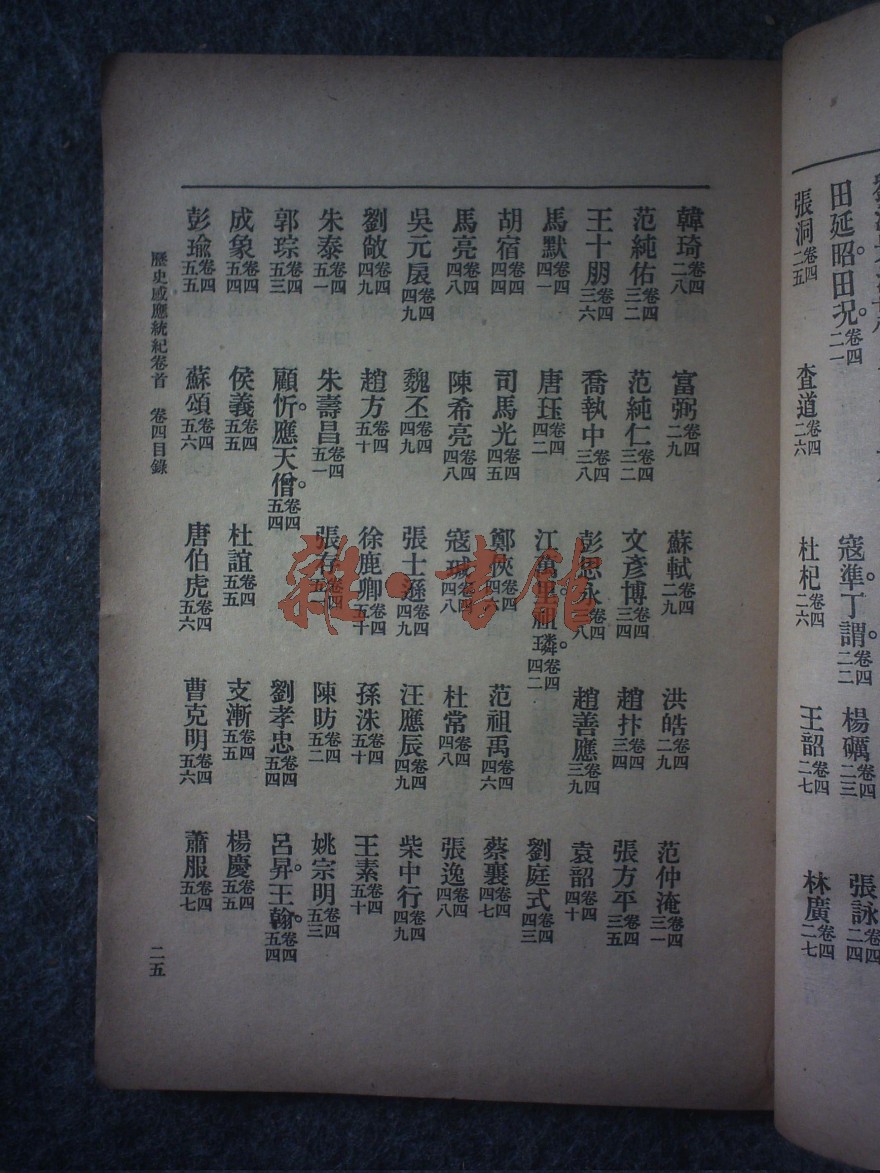 田延昭。田況。卷四二一
寇準。丁謂。卷四二二
楊礪卷四二三
張詠卷四二四
張洞卷四二五
查道卷四二六
杜杞卷四二六
王韶卷四二七
林廣卷四二七
韓琦卷四二八
富弼卷四二九
蘇軾卷四二九
洪皓卷四二九
范仲淹卷四三一
范純佑卷四三二
范純仁卷四三二
文彥博卷四三四
趙抃卷四三四
張方平卷四三五
王十朋卷四三六
喬執中卷四三八
彭思永卷四三八
趙善應卷四三九
袁韶卷四四十
馬默卷四四一
唐珏卷四四二
江萬里。祖璘。卷四四二
劉庭式卷四四三
胡宿卷四四四
司馬光卷四四五
鄭俠卷四四六
范祖禹卷四四六
蔡襄卷四四七
馬亮卷四四八
陳希亮卷四四八
寇瑊卷四四八
杜常卷四四八
張逸卷四四八
吳元扆卷四四九
魏丕卷四四九
張士遜卷四四九
汪應辰卷四四九
柴中行卷四四九
劉敞卷四四九
趙方卷四五十
徐鹿卿卷四五十
孫洙卷四五十
王素卷四五十
朱泰卷四五一
朱壽昌卷四五一
張存卷四五二
陳昉卷四五二
姚宗明卷四五三
郭琮卷四五三
顧忻。應天僧。卷四五四
劉孝忠卷四五四
呂昇。王翰。卷四五四
成象卷四五四
侯義卷四五五
杜誼卷四五五
支漸卷四五五
楊慶卷四五五
彭瑜卷四五五
蘇頌卷四五六
唐伯虎卷四五六
曹克明卷四五六
蕭服卷四五七
歷史感應統紀卷首 卷四目錄 二五
雜·書館